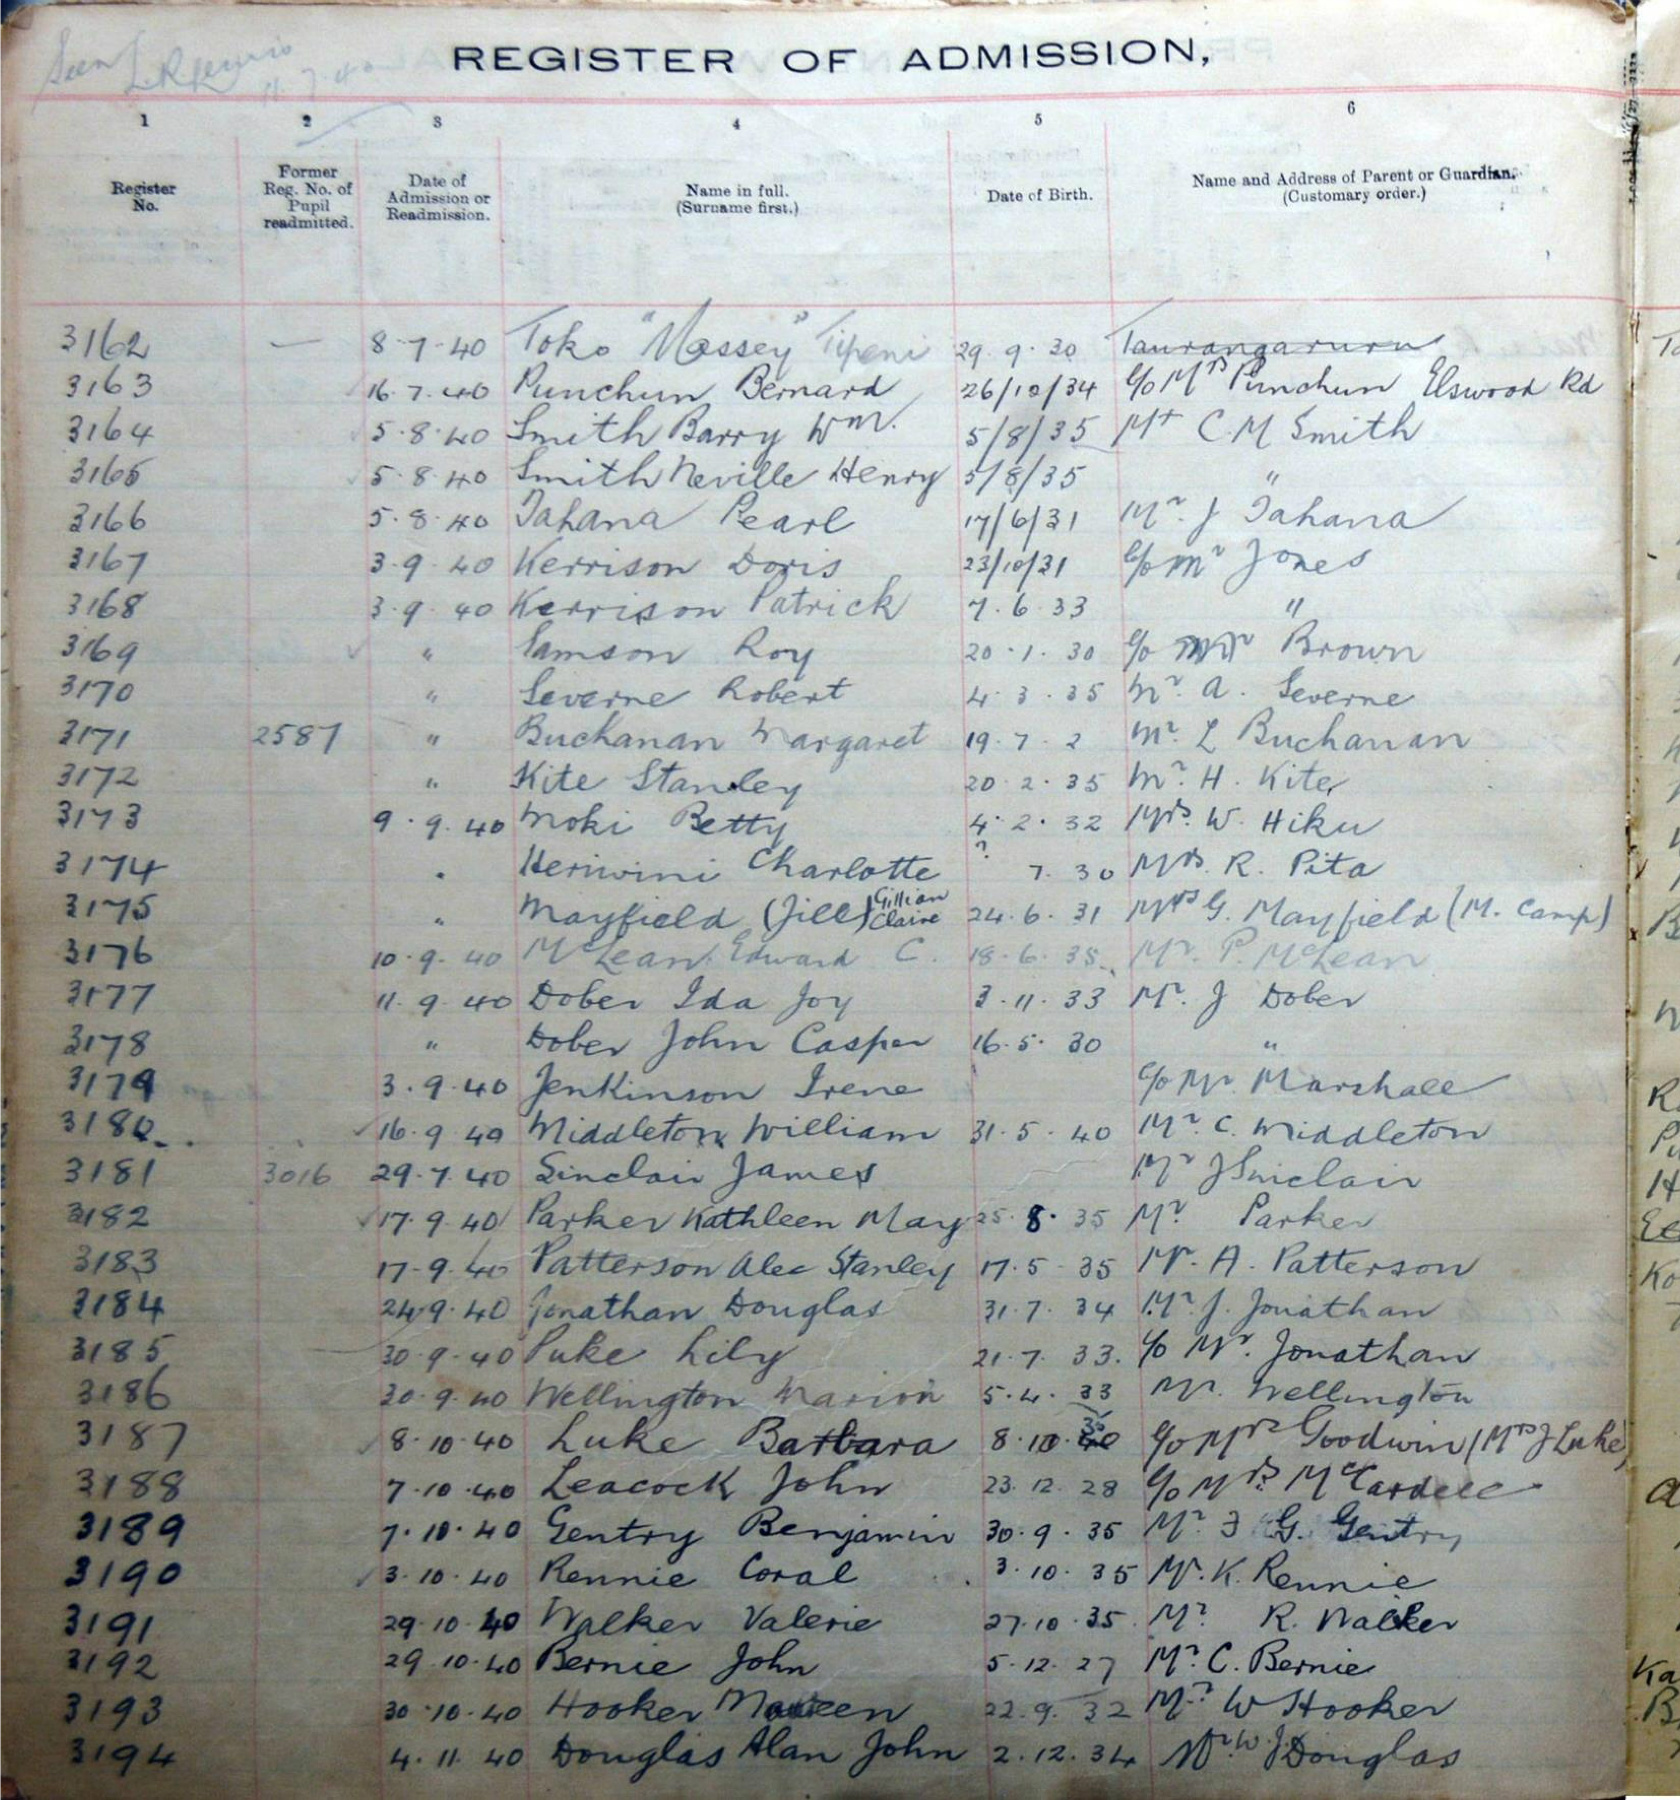 Seen
11.7.40
REGISTER OF ADMISSION,
1 2 3 4 5 6
Register No. Former Reg. No. of Pupil readmitted. Date of Admission or Readmission. Name in full. (Surname first.) Date of Birth. Name and Address of Parent or Guardian. (Customary order.)
3162 — 8.7.40 Toko "Massey" Tipeni 29.9.30 Taurangaruru
3163 16.7.40 Punchun Bernard 26/10/34 c/o Mrs Punchun Elswood Rd
3164 5.8.40 Smith Barry Wm. 5/8/35 Mr C.M Smith
3165 5.8.40 Smith Neville Henry 5/8/35 "
3166 5.8.40 Tahana Pearl 17/6/31 Mr. J Tahana
3167 3.9.40 Kerrison Doris 23/10/31 c/o Mr Jones
3168 3.9.40 Kerrison Patrick 7.6.33 "
3169 " Samson Roy 20.1.30 c/o Mr Brown
3170 " Severne Robert 4.3.35 Mr. A. Severne
3171 2587 " Buchanan Margaret 19.7.2 Mr. L Buchanan
3172 " Kite Stanley 20.2.35 Mr. H. Kite
3173 9.9.40 Moki Betty 4.2.32 Mrs. W. Hiku
3174 " Heriwini Charlotte ? 7.30 Mrs. R. Pita
3175 " Mayfield (Jill) Gillian Claire 24.6.31 Mrs G. Mayfield (M. Camp)
3176 10.9.40 McLean Edward C. 18.6.35 Mr. P. McLean
3177 11.9.40 Dober Ida Joy 3.11.33 Mr. J Dober
3178 " Dober John Casper 16.5.30 "
3179 3.9.40 Jenkinson Irene c/o Mr. Marshall
3180 16.9.40 Middleton William 31.5.40 Mr. C. Middleton
3181 3016 29.7.40 Sinclair James Mr J Sinclair
3182 17.9.40 Parker Kathleen May 25.8.35 Mr. Parker
3183 17.9.40 Patterson Alec Stanley 17.5.35 Mr. A. Patterson
3184 24.9.40 Jonathan Douglas 31.7.34 Mr. J. Jonathan
3185 30.9.40 Puke Lily 21.7.33. c/o Mr. Jonathan
3186 30.9.40 Wellington Marion 5.4.33 Mr. Wellington
3187 8.10.40 Luke Barbara 8.10.35 c/o Mrs Goodwin (Mrs J Luke)
3188 7.10.40 Leacock John 23.12.28 c/o Mrs. McCardell
3189 7.10.40 Gentry Benjamin 30.9.35 Mr. F G. Gentry
3190 3.10.40 Rennie Coral 3.10.35 Mr. K. Rennie
3191 29.10.40 Walker Valerie 27.10.35 Mr. R. Walker
3192 29.10.40 Bernie John 5.12.27 Mr. C. Bernie
3193 30.10.40 Hooker 22.9.32 Mr. W Hooker
3194 4.11.40 Douglas Alan John 2.12.34 Mr. W. J. Douglas